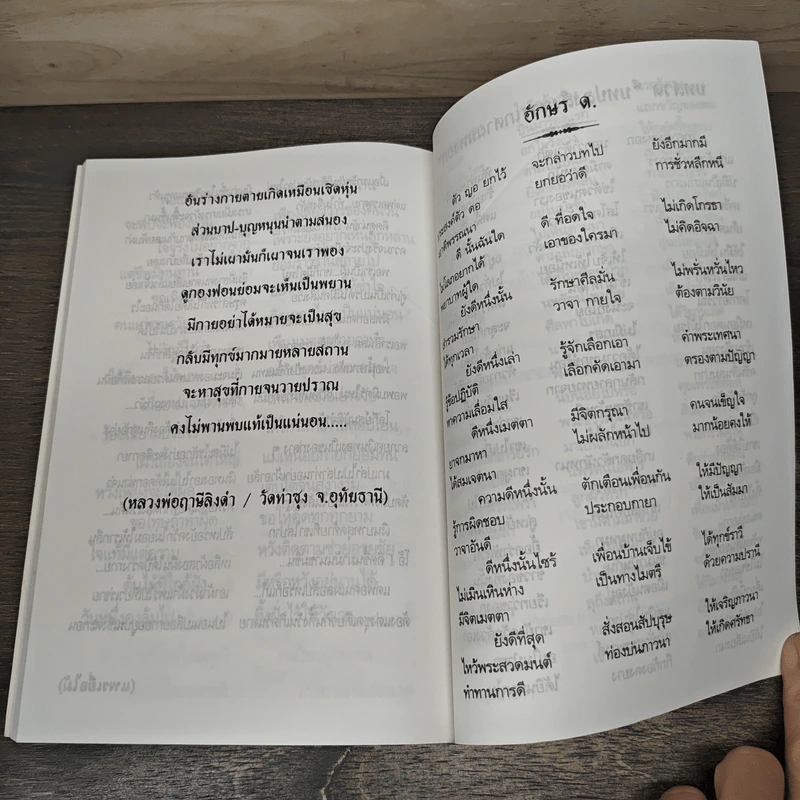 อันร่างกายตายเกิดเหมือนเชิดหุ่น
ส่วนบาป-บุญหนุนนำตามสนอง
เราไม่เผามันก็เผาจนเราพอง
ดูกองฟอนย่อมจะเห็นเป็นพยาน
มีกายอย่าได้หมายจะเป็นสุข
กลับมีทุกข์มากมายหลายสถาน
จะหาสุขที่กายจนวายปราณ
คงไม่พานพบแท้เป็นแน่นอน.....
(หลวงพ่อฤาษีลิงดำ / วัดท่าซุง จ.อุทัยธานี)
อักษร ด.
ตัว ญอ ยกไว้ จะกล่าวบทไป ยังอีกมากมี
ตัว ดอ ยกยอว่าดี การชั่วหลีกหนี
พรรณนา
ดี นั้นฉันใด ดี ที่อดใจ ไม่เกิดโกรธา
โลภอยากได้ เอาของใครมา ไม่คิดอิจฉา
พยาบาทผู้ใด
ยังดีหนึ่งนั้น รักษาศีลมัน ไม่พรั่นหวั่นไหว
สำรวมรักษา วาจา กายใจ ต้องตามวินัย
ได้ทุกเวลา
ยังดีหนึ่งเล่า รู้จักเลือกเอา คำพระเทศนา
รู้ข้อปฏิบัติ เลือกคัดเอามา ตรองตามปัญญา
หาความเลื่อมใส
ดีหนึ่งเมตตา มีจิตกรุณา คนจนเข็ญใจ
ยาจกมาหา ไม่ผลักหน้าไป มากน้อยคงให้
ได้สมเจตนา
ความดีหนึ่งนั้น ตักเตือนเพื่อนกัน ให้มีปัญญา
รู้การผิดชอบ ประกอบกายา ให้เป็นสัมมา
วาจาอันดี
ดีหนึ่งนั้นไซร้ เพื่อนบ้านเจ็บไข้ ได้ทุกข์ราวี
ไม่เมินเหินห่าง เป็นทางไมตรี ด้วยความปรานี
มีจิตเมตตา
ยังดีที่สุด สั่งสอนสัปบุรุษ ให้เจริญภาวนา
ไหว้พระสวดมนต์ ท่องบ่นภาวนา ให้เกิดศรัทธา
ทำทานการดี